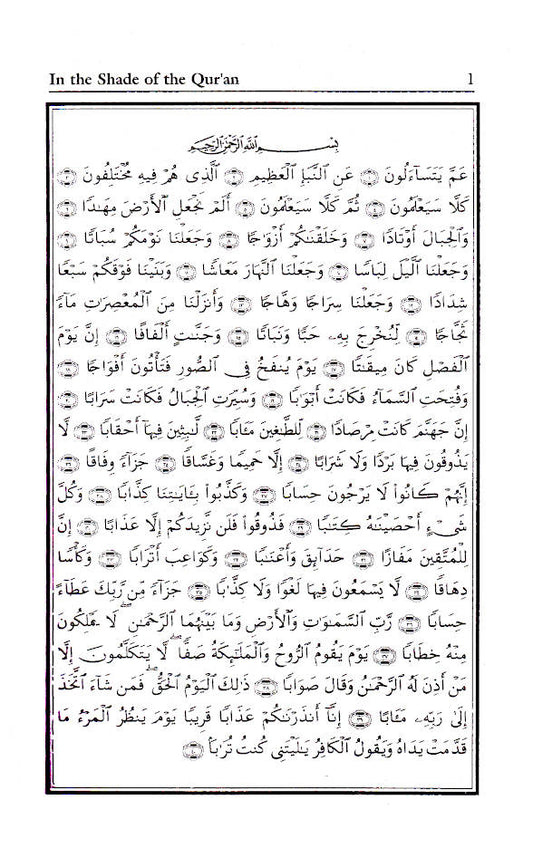 In the Shade of the Qur'an 1
بِسْمِ ٱللَّهِ ٱلرَّحْمَٰنِ ٱلرَّحِيمِ
عَمَّ يَتَسَآءَلُونَ ١ عَنِ ٱلنَّبَإِ ٱلْعَظِيمِ ٢ ٱلَّذِى هُمْ فِيهِ مُخْتَلِفُونَ ٣
كَلَّا سَيَعْلَمُونَ ٤ ثُمَّ كَلَّا سَيَعْلَمُونَ ٥ أَلَمْ نَجْعَلِ ٱلْأَرْضَ مِهَٰدًا ٦
وَٱلْجِبَالَ أَوْتَادًا ٧ وَخَلَقْنَٰكُمْ أَزْوَٰجًا ٨ وَجَعَلْنَا نَوْمَكُمْ سُبَاتًا ٩
وَجَعَلْنَا ٱلَّيْلَ لِبَاسًا ١٠ وَجَعَلْنَا ٱلنَّهَارَ مَعَاشًا ١١ وَبَنَيْنَا فَوْقَكُمْ سَبْعًا
شِدَادًا ١٢ وَجَعَلْنَا سِرَاجًا وَهَّاجًا ١٣ وَأَنزَلْنَا مِنَ ٱلْمُعْصِرَٰتِ مَآءً
ثَجَّاجًا ١٤ لِّنُخْرِجَ بِهِۦ حَبًّا وَنَبَاتًا ١٥ وَجَنَّٰتٍ أَلْفَافًا ١٦ إِنَّ يَوْمَ
ٱلْفَصْلِ كَانَ مِيقَٰتًا ١٧ يَوْمَ يُنفَخُ فِى ٱلصُّورِ فَتَأْتُونَ أَفْوَاجًا ١٨
وَفُتِحَتِ ٱلسَّمَآءُ فَكَانَتْ أَبْوَٰبًا ١٩ وَسُيِّرَتِ ٱلْجِبَالُ فَكَانَتْ سَرَابًا ٢٠
إِنَّ جَهَنَّمَ كَانَتْ مِرْصَادًا ٢١ لِّلطَّٰغِينَ مَـَٔابًا ٢٢ لَّٰبِثِينَ فِيهَآ أَحْقَابًا ٢٣ لَّا
يَذُوقُونَ فِيهَا بَرْدًا وَلَا شَرَابًا ٢٤ إِلَّا حَمِيمًا وَغَسَّاقًا ٢٥ جَزَآءً وِفَاقًا ٢٦
إِنَّهُمْ كَانُوا۟ لَا يَرْجُونَ حِسَابًا ٢٧ وَكَذَّبُوا۟ بِـَٔايَٰتِنَا كِذَّابًا ٢٨ وَكُلَّ
شَىْءٍ أَحْصَيْنَٰهُ كِتَٰبًا ٢٩ فَذُوقُوا۟ فَلَن نَّزِيدَكُمْ إِلَّا عَذَابًا ٣٠ إِنَّ
لِلْمُتَّقِينَ مَفَازًا ٣١ حَدَآئِقَ وَأَعْنَٰبًا ٣٢ وَكَوَاعِبَ أَتْرَابًا ٣٣ وَكَأْسًا
دِهَاقًا ٣٤ لَّا يَسْمَعُونَ فِيهَا لَغْوًا وَلَا كِذَّٰبًا ٣٥ جَزَآءً مِّن رَّبِّكَ عَطَآءً
حِسَابًا ٣٦ رَّبِّ ٱلسَّمَٰوَٰتِ وَٱلْأَرْضِ وَمَا بَيْنَهُمَا ٱلرَّحْمَٰنِ ۖ لَا يَمْلِكُونَ
مِنْهُ خِطَابًا ٣٧ يَوْمَ يَقُومُ ٱلرُّوحُ وَٱلْمَلَٰٓئِكَةُ صَفًّا ۖ لَّا يَتَكَلَّمُونَ إِلَّا
مَنْ أَذِنَ لَهُ ٱلرَّحْمَٰنُ وَقَالَ صَوَابًا ٣٨ ذَٰلِكَ ٱلْيَوْمُ ٱلْحَقُّ ۖ فَمَن شَآءَ ٱتَّخَذَ
إِلَىٰ رَبِّهِۦ مَـَٔابًا ٣٩ إِنَّآ أَنذَرْنَٰكُمْ عَذَابًا قَرِيبًا يَوْمَ يَنظُرُ ٱلْمَرْءُ مَا
قَدَّمَتْ يَدَاهُ وَيَقُولُ ٱلْكَافِرُ يَٰلَيْتَنِى كُنتُ تُرَٰبًۢا ٤٠